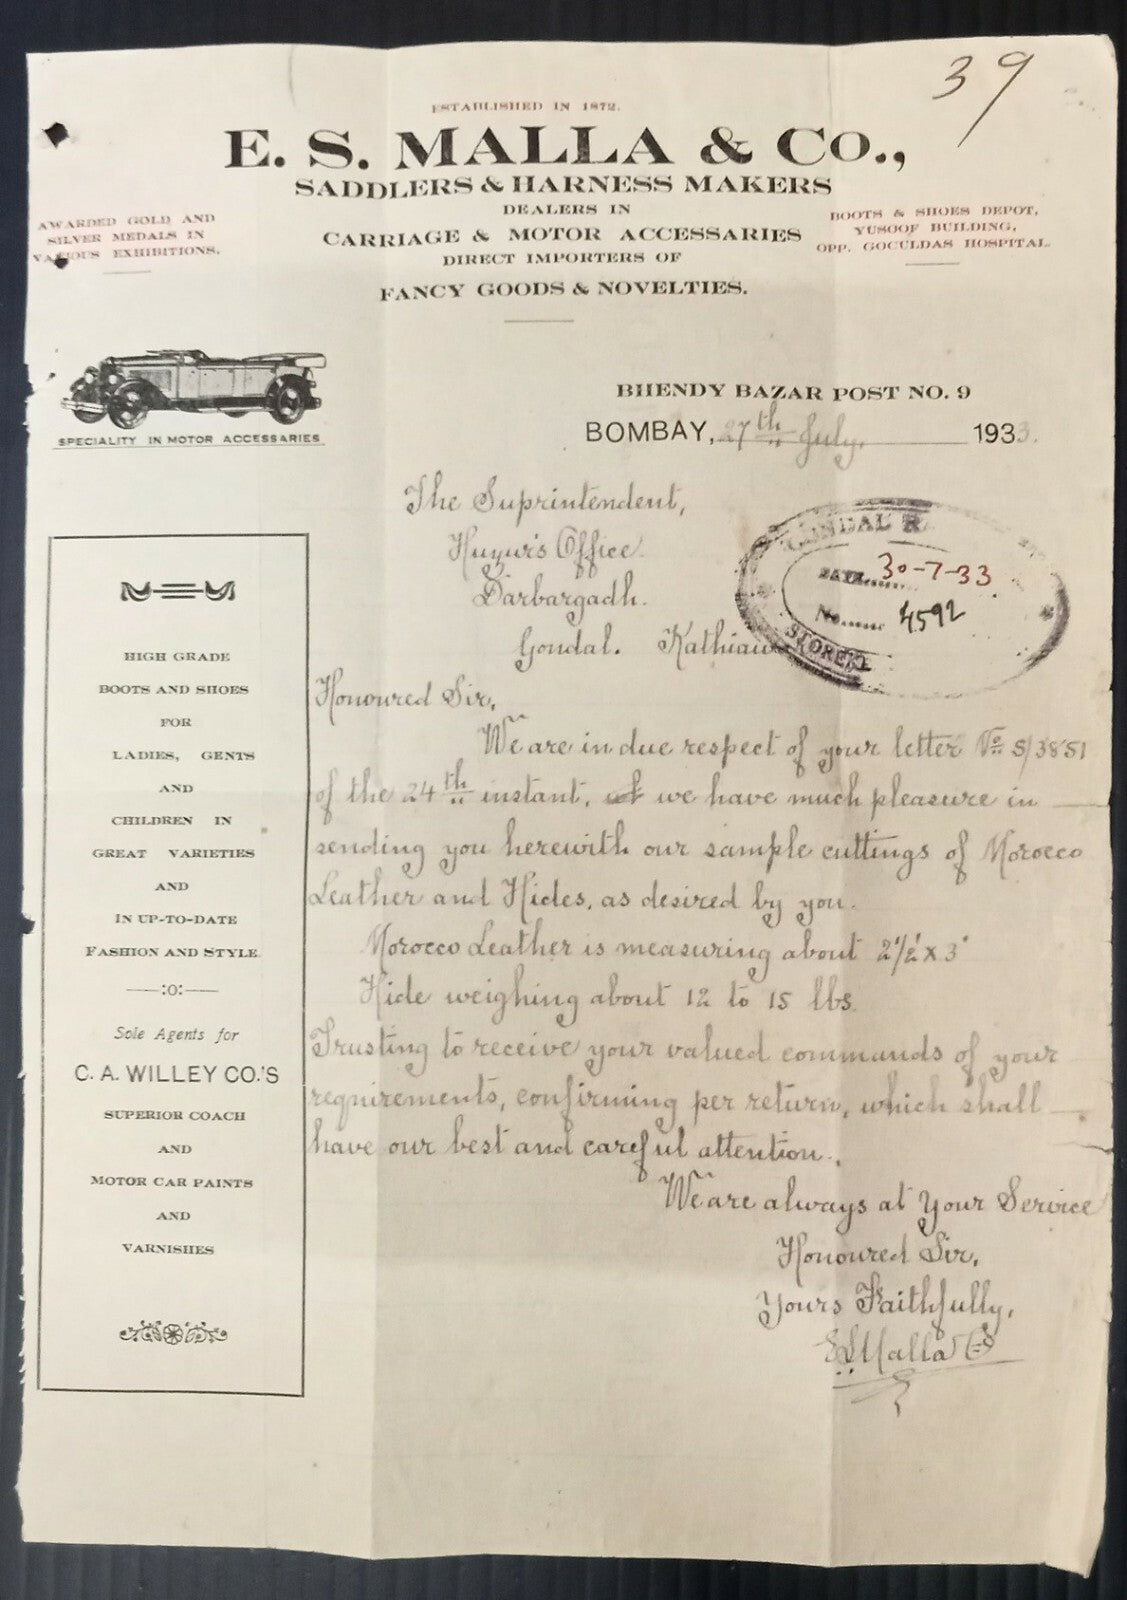 39
ESTABLISHED IN 1872.
E. S. MALLA & CO.,
SADDLERS & HARNESS MAKERS
DEALERS IN
CARRIAGE & MOTOR ACCESSARIES
DIRECT IMPORTERS OF
FANCY GOODS & NOVELTIES.
AWARDED GOLD AND
SILVER MEDALS IN
VARIOUS EXHIBITIONS.
BOOTS & SHOES DEPOT,
YUSOOF BUILDING,
OPP. GOCULDAS HOSPITAL.
SPECIALITY IN MOTOR ACCESSARIES
BHENDY BAZAR POST NO. 9
BOMBAY, 27th July, 1933.
The Suprintendent,
Huzur's Office.
Darbargadh.
Gondal. Kathiaw
GONDAL
DATE...... 30-7-33
No...... 4592
STORE
Honoured Sir,
We are in due respect of your letter No S/3851
of the 24th instant, we have much pleasure in
sending you herewith our sample cuttings of Morocco
Leather and Hides, as desired by you.
Morocco Leather is measuring about 2½' x 3'
Hide weighing about 12 to 15 lbs.
Trusting to receive your valued commands of your
requirements, confirming per return, which shall
have our best and careful attention.
We are always at Your Service
Honoured Sir,
Yours Faithfully,
E S Malla Co
HIGH GRADE
BOOTS AND SHOES
FOR
LADIES, GENTS
AND
CHILDREN IN
GREAT VARIETIES
AND
IN UP-TO-DATE
FASHION AND STYLE.
——:o:——
Sole Agents for
C. A. WILLEY CO.'S
SUPERIOR COACH
AND
MOTOR CAR PAINTS
AND
VARNISHES